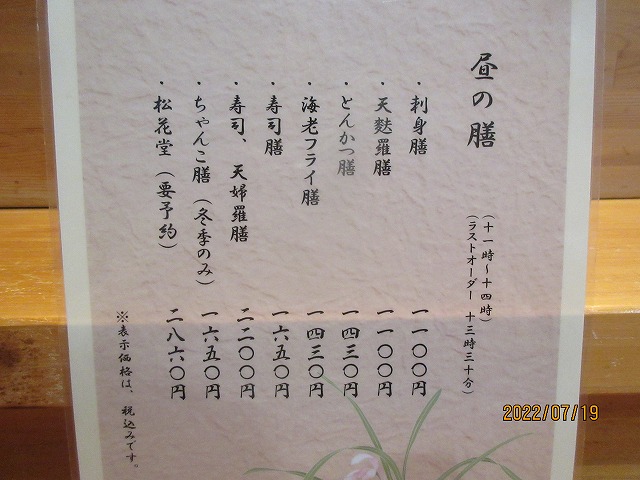 昼の膳
（十一時～十四時）
（ラストオーダー 十三時三十分）
・刺身膳 一一〇〇円
・天麩羅膳 一一〇〇円
・とんかつ膳 一四三〇円
・海老フライ膳 一四三〇円
・寿司膳 一六五〇円
・寿司、天婦羅膳 二二〇〇円
・ちゃんこ膳（冬季のみ） 一六五〇円
・松花堂（要予約） 二八六〇円
※表示価格は、税込みです。
2022/07/19